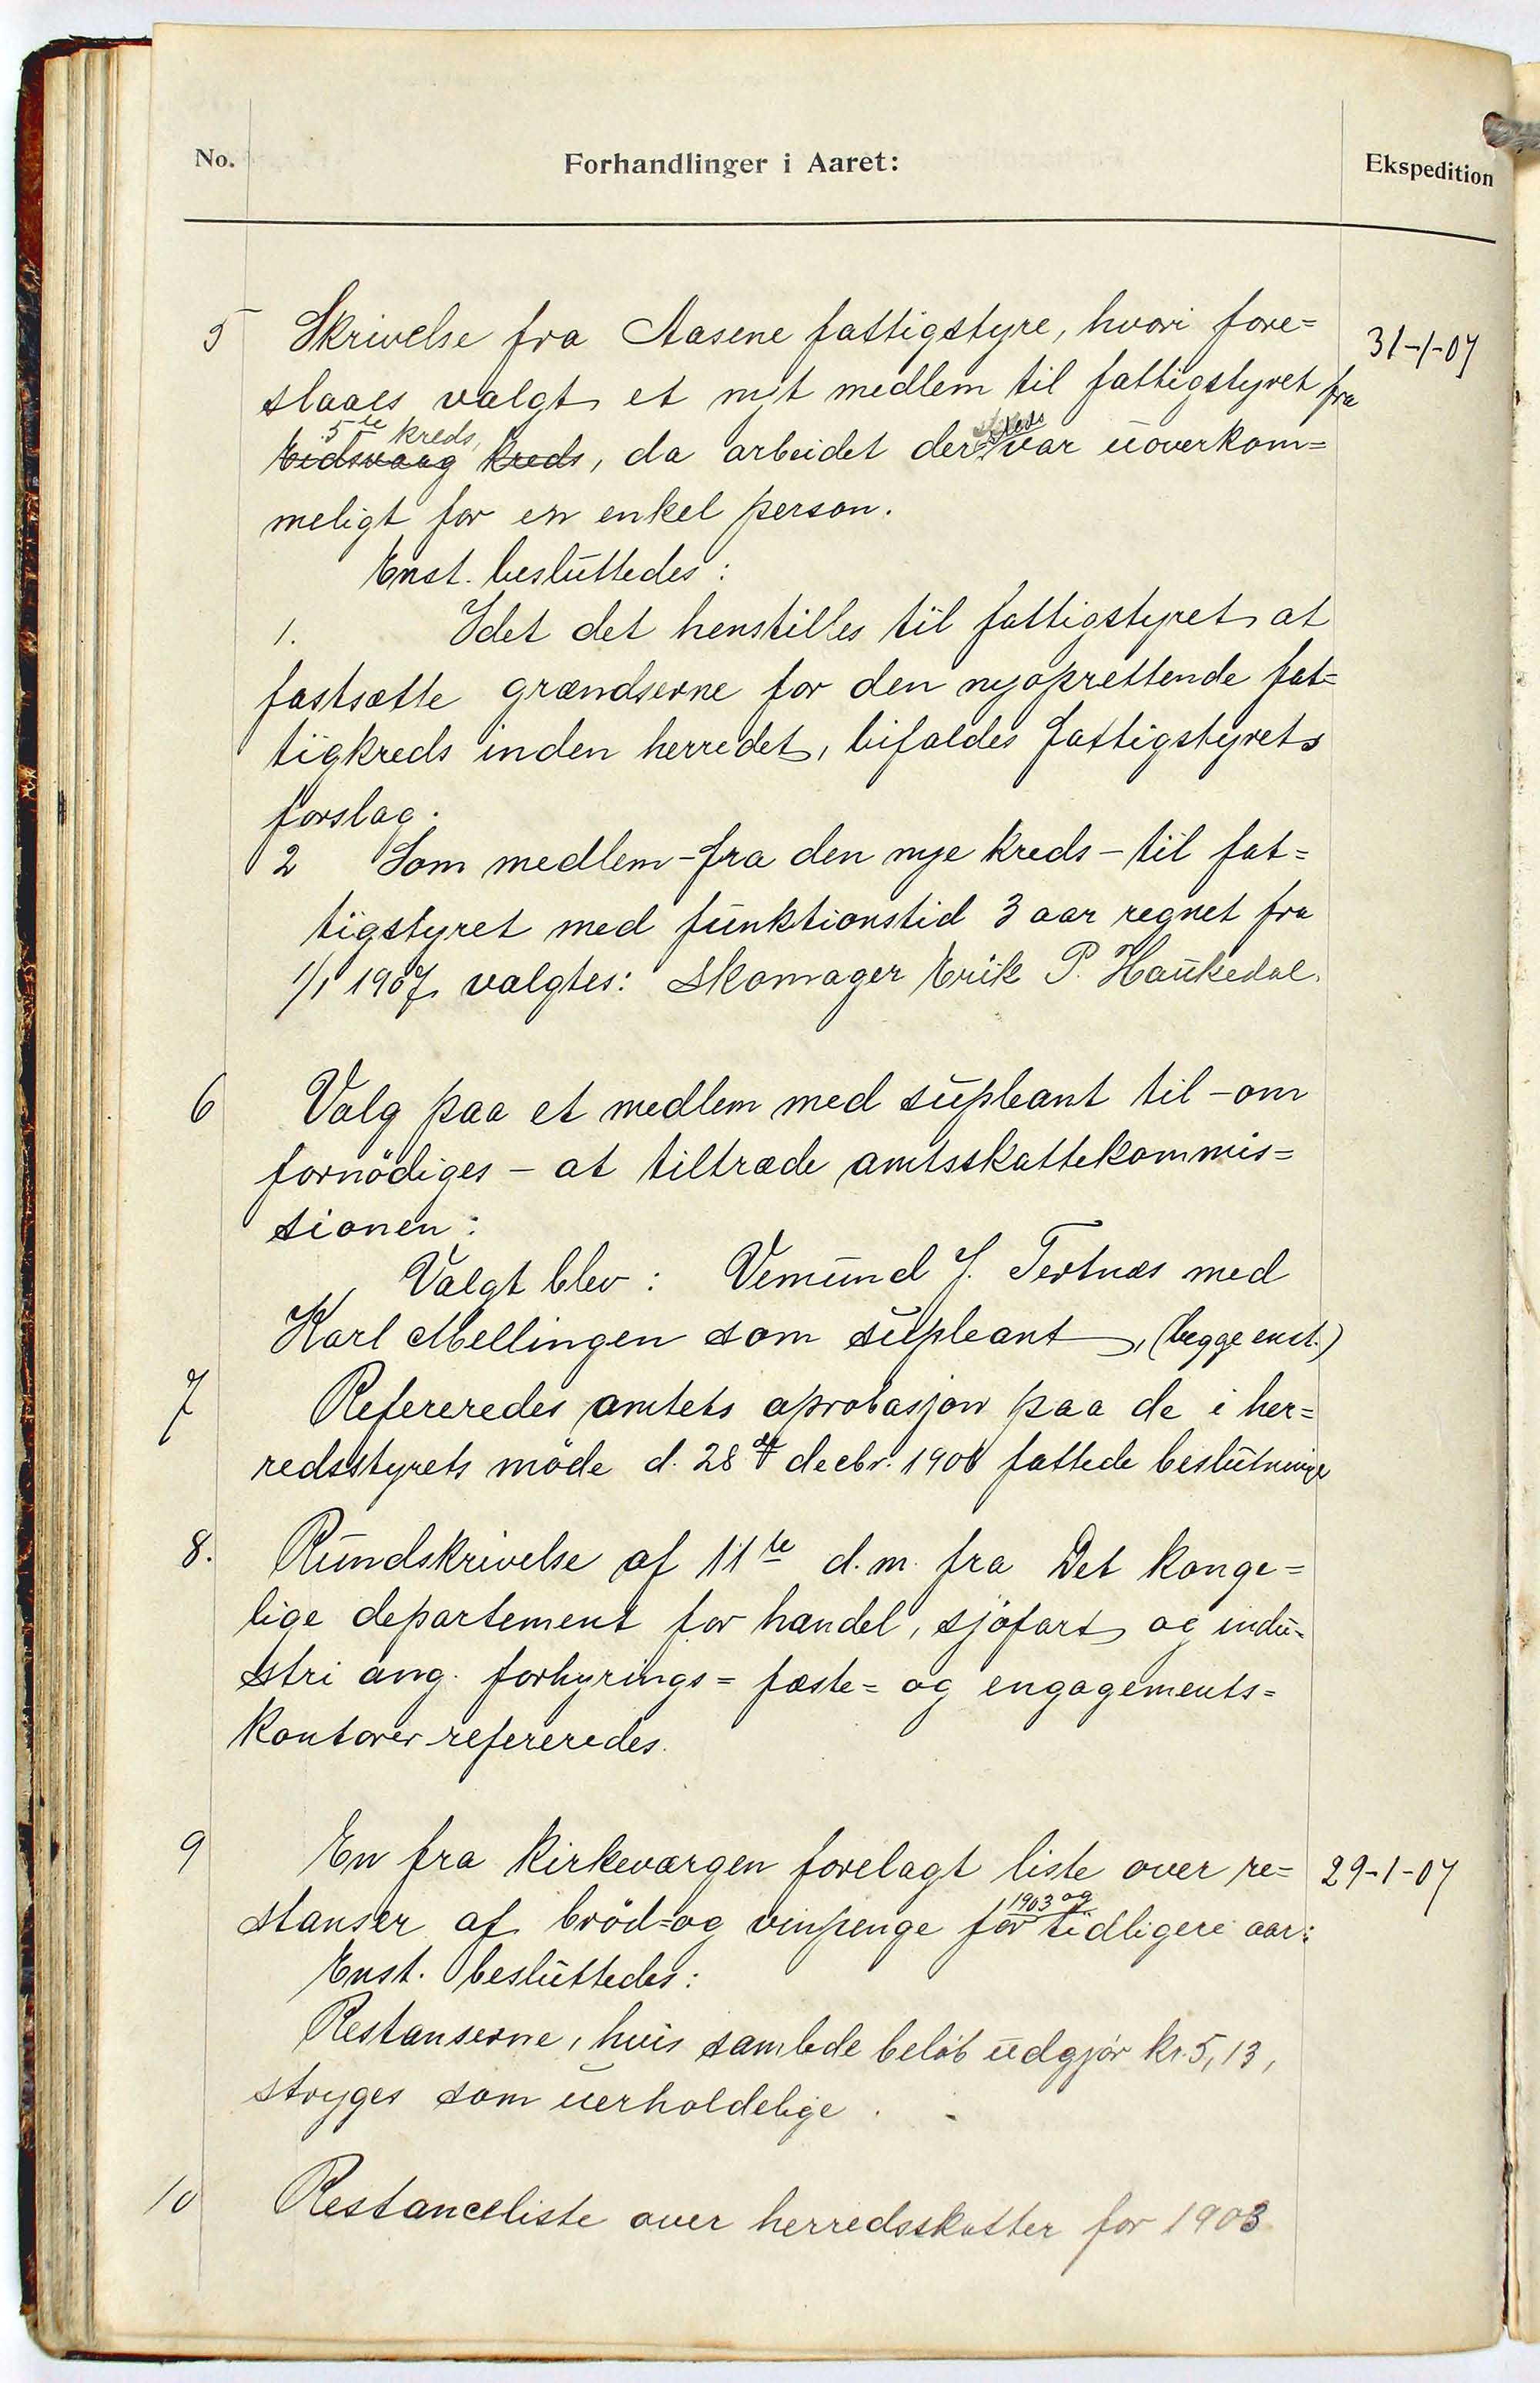 No. Forhandlinger i Aaret: Ekspedition
5 Skrivelse fra Aasene fattigstyre, hvori fore= 31-1-07
slaaes valgt et nyt medlem til fattigstyret fra
5te kreds,
Eidsvaag kreds, da arbeidet dersteds var uoverkom=
meligt for en enkel person.
Enst. besluttedes:
1. Idet det henstilles til fattigstyret at
fastsætte grændserne for den nyoprettende fat=
tigkreds inden herredet, bifaldes fattigstyrets
forslag.
2 Som medlem - fra den nye kreds - til fat=
tigstyret med funktionstid 3 aar regnet fra
1/1 1907 valgtes: Skomager Erik P. Haukedal.
6 Valg paa et medlem med supleant til - om
fornödiges - at tiltræde amtsskattekommis=
sionen:
Valgt blev: Vemund J. Tertnæs med
Karl Mellingen som supleant, (begge enst.)
7 Refereredes amtets aprobasjon paa de i her=
redsstyrets möde d. 28de decbr. 1906 fattede beslutninge
8. Rundskrivelse af 11te d.m. fra Det konge=
lige departement for handel, sjöfart og indu=
stri ang. forhyrings= fæste= og engagements=
kontorer refereredes.
9 En fra kirkeværgen forelagt liste over re= 29-1-07
1903 og
stanser af bröd= og vinpenge for tidligere aar:
Enst. besluttedes:
Restanserne, hvis samlede belöb udgjör kr. 5,13,
stryges som uerholdelige.
10 Restanceliste over herredsskatter for 1903